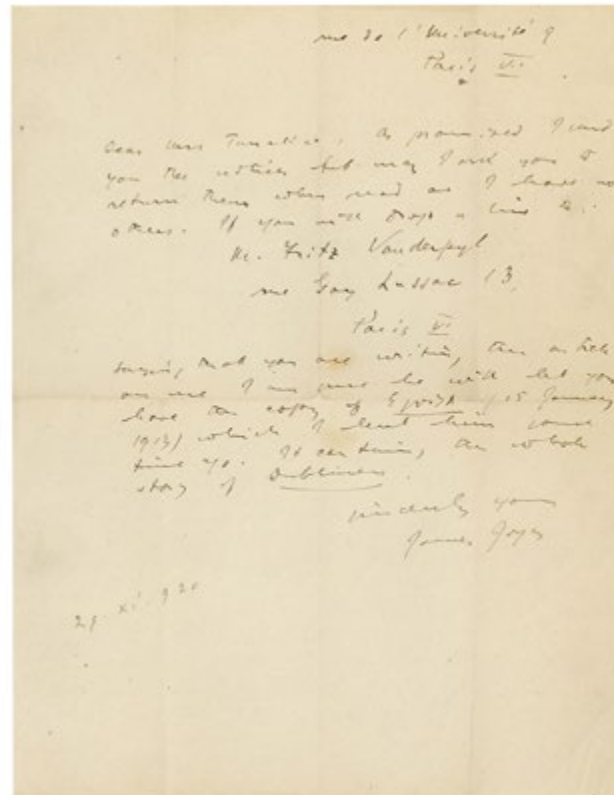 rue de l'Université 9
Paris VII
Dear Mrs , As promised I send
you the notices but may I ask you to
return them when read as I have no
others. If you will drop a line to:
M. Fritz Vanderpyl
rue Gay Lussac 13,
Paris V
saying that you are writing the article
on me I am sure he will let you
have the copy of Egoist (15 January
1914) which I lent him some
time ago. It contains the whole
story of Dubliners.
sincerely yours
James Joyce
29. XI. 920